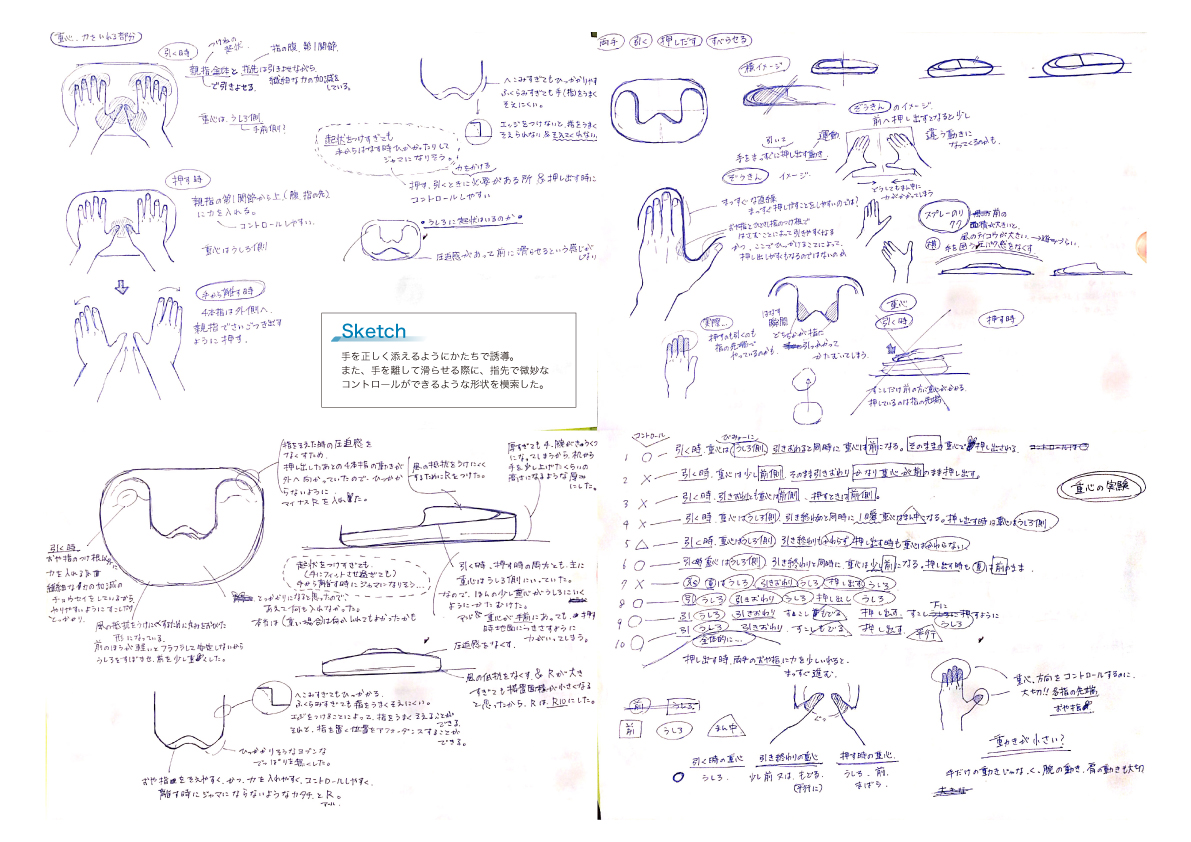 重心、力をいれる部分
引く時
つけねの
形状
指の腹、第1関節
親指全体と指先は引きよせながら
繊細な力の加減を
で引きよせる
している。
重心は、うしろ側
手前側?
押す時
親指の第1関節から上(腹、指の先)
に力を入れる。
コントロールしやすい。
重心はうしろ側
手から離す時
4本指は外側へ、
親指でさいごつき出す
ように押す。
へこみすぎてもひっかかりやす
ふくらみすぎても手(指)をうまく
そえにくい。
エッジをつけないと、指をうまく
そえられない
起状をつけすぎても
手からはなす時ひっかかったりして
ジャマになりそう。
力をかける
押す、引くときに必要がある所 & 押し出す時に
コントロールしやすい
うしろに起状はいるのか
圧迫感があって前に滑らせるという感じが
しない
Sketch
手を正しく添えるようにかたちで誘導。
また、手を離して滑らせる際に、指先で微妙な
コントロールができるような形状を模索した。
両手
引く
押しだす
すべらせる
横イメージ
ぞうきん のイメージ
前へ押し出すとなると少し
違う動きに
なってくるのかも。
引いて
運動
手をまっすぐに押し出す動き
ぞうきん イメージ
どうしてもまん中に
力がかかってしまう
まっすぐな直線
まっすぐ押しやすことをしやすいのでは?
おや指とひとさし指のつけ根で
はさむことによって引きやすくなる
かつ、ここでひっかけることによって、
押し出しがれもなるのではないのか
スプレーのり
フタ
前の
面積が大きいと、
風のテイコウが大きい。
横
手を囲う圧パク感をなくす
はなす
瞬間
どうしても力が指に
引っぱって
かたむいてしまう。
実際…
押すのも引くのも
指の先端で
やっているのかも。
重心
引く時
押す時
すこしだけ前の方に重心がかかる
押しているのは指の先端
指をそえた時の圧迫感を
なくすため
押し出したあとの4本指の動きが
外へ向かっていたので、ひっかか
らないように
マイナスRを入れ着た。
風の抵抗をうけにくく
するためにRをつけた。
厚すぎても手、腕がきゅうくつ
にな。てしまうから、机から
手を少し上げたくらいの
高さになるような厚み
にした。
引く時
おや指のつけ根にそって
力を入れる気質
繊細な力の加減の
チョウセイをしているから
やりやすいようにすこしだけ
とっかかり。
起状をつけすぎも、
(手にフィットさせ過ぎても)
手から離す時にジャマになりそう…
とっかかりになると思ったので、
あえて何も入れなかった。
本当は(重い場合は何か入れてもよかったかも
引く時、押す時の両方とも、主に
重心はうしろ側にいっていた。
なので、ほんの少し重心がうしろにいく
ようにかたむけた。
マンガ重心が手前にあっても、押す
時地面につきさすように
力がいってしまう。
風の抵抗をうけにくくするために丸みをおびた
形になっている。
前のほうが軽いとフラフラして安定しないから
うしろをすぼませ、前を少し重くした。
圧迫感をなくす。
風の低抗をなくす & Rが大き
すぎても接着面積が小さくなる
と思ったから、Rは、R10にした。
へこみすぎてもひっかかる。
ふくらみすぎても指をうまくそえにくい。
エッジをつけることによって、指をうまくそえることができる
それと、指を置く位置をアフォーダンスすることが
できる。
ひっかかりそうなヨブンな
でっぱりを無くした。
おや指をそえやすく、かつ、力を入れやすく、コントロールしやすく、
離す時にジャマにならないようなカタチとR。
アール
コントロール
びみょーに
1 ○ 引く時、重心はうしろ側、引きおわると同時に重心は前になる。そのままの重心で押し出される
2 × 引く時、重心は少し前側、そのまま引きおわり、かなり重心が前のまま押し出す。
3 × 引く時、引き出した重心は前側、押すときは前側。
4 × 引く時、重心はうしろ側、引き終わると同時に1回重心はまん中になる。押し出す時は重心はうしろ側
5 △ 引く時、重心はうしろ側、引き終わりもかわらず、押し出す時も重心はかわらない
6 ○ 引く時重心はうしろ側、引き終わりと同時に重心は少し前になる。押し出す時も重は前のまま。
7 × 引 重はうしろ、引きおわり、うしろ 押し出す うしろ
8 ○ 引 うしろ 引きおわり うしろ 押し出し うしろ
9 ○ 引 うしろ 引きおわり すこしもどる 押し出す すこし うしろ
下に
押すように
10 ○ 引 うしろ 引きおわり、すこしもどる 押し出す 平行
全体的に…
重心の実験
押し出す時、両手のおや指に力を少しいれると、
まっすぐ進む。
前
うしろ
前
うしろ
まん中
引く時の重心
引き終わりの重心
押す時の重心
○ うしろ
少し前 又は、もどる
うしろ 前
(平行に)
まばら。
重心、方向をコントロールするのに、
大切!! 各指の先端
おや指
動きが小さい?
手だけの動きじゃなく、腕の動き、肩の動きも大切